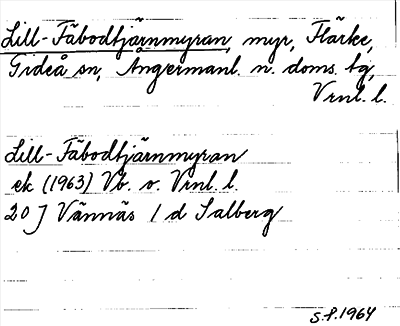 Lill-Fäbodtjärnmyran, myr, Flärke,
Gideå sn, Ångermanl. n. doms. tg,
Vrnl. l.
Lill-Fäbodtjärnmyran
ek (1963) Vb. o. Vrnl. l.
20 J Vännäs 1 d Salberg
S.f. 1964